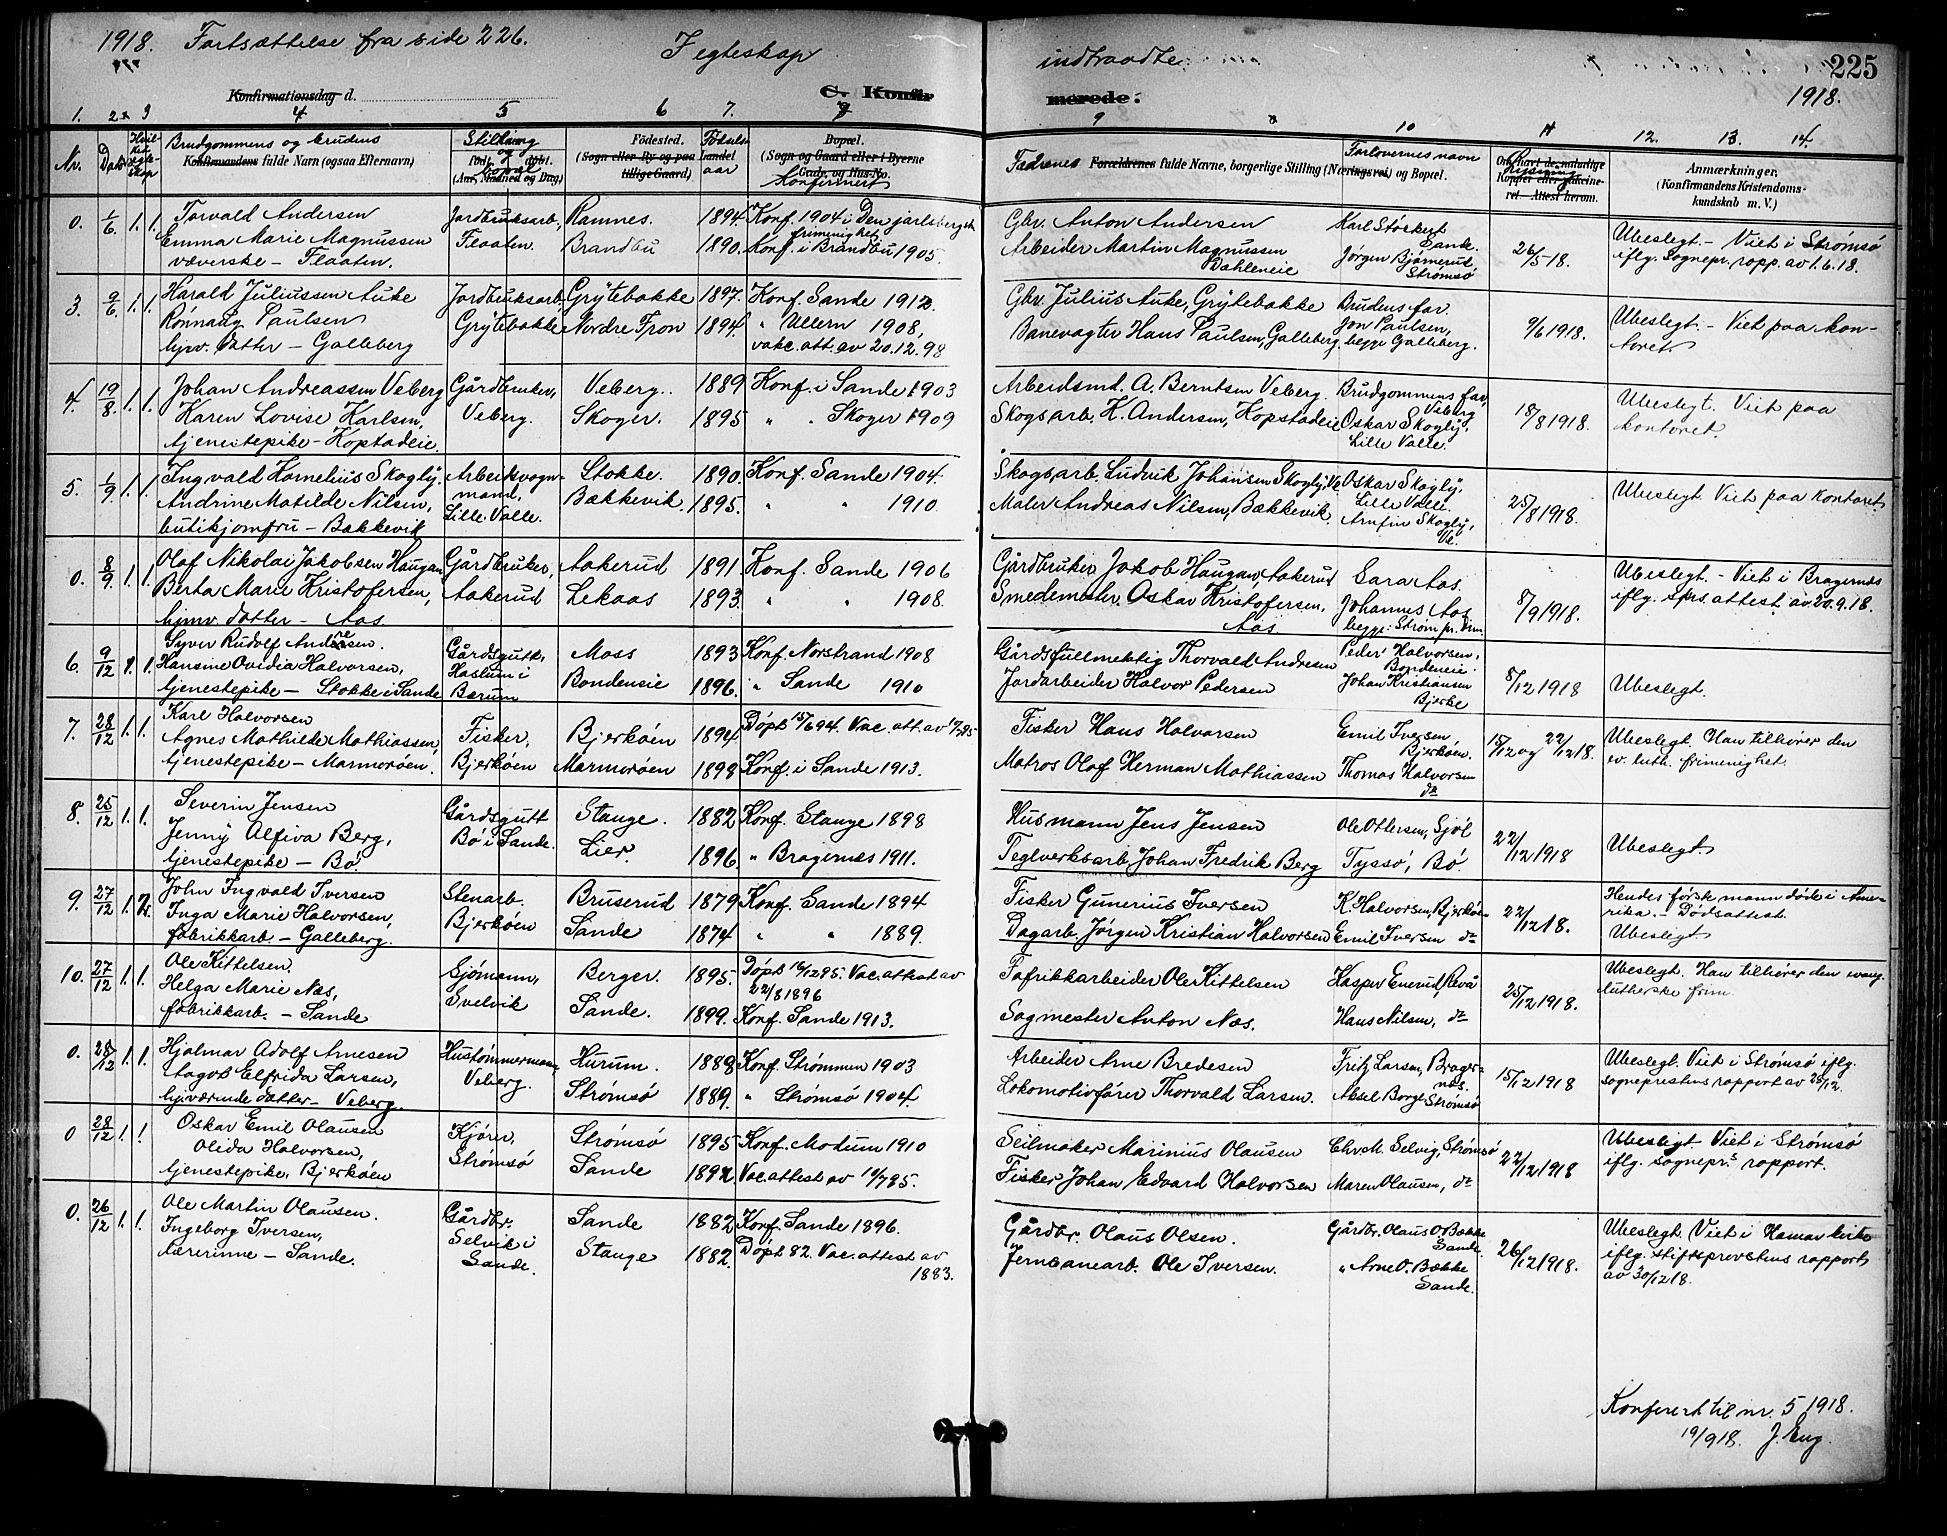 1918. Fortsættelse fra side 226.
I egteskap indtraadte
225
1918.
Konfirmationsdag d.
C. Konfirmerede.
1. 2. 3 4 5 6 7. 8 9 10 11 12. 13. 14
Nr. Dato Brudgommens og brudens Konfirmandens fulde Navn (ogsaa Efternavn)
Stilling og bopæl
(Aar, Maaned og Dag)
Födested. (Sogn eller By og paa Landet tillige Gaard)
Födselsaar
Bopæl. (Sogn og Gaard eller i Byerne Gade og Hus-No. Konfirmert
Fædrenes Forældrenes fulde Navne, borgerlige Stilling (Næringsvei) og Bopæl.
Forlovernes navn
Om havt de naturlige Kopper eller Vakcineret. Attest herom. Lysning
Anmærkninger, (Konfirmandens Kristendomskundskab m. V.)
0. 1/6 1. 1. Torvald Andersen Jordbruksarb. Ramnes. 1894. Konf. 1904 i Den jarlsbergske frimenighet Gbr. Anton Andersen Karl Stöckert Sande.
Emma Marie Magnussen Flaaten. Brandbu 1890. Konf. i Brandbu 1905. Arbeider Martin Magnussen Dæhleneie Jørgen Bjømerud Strømsø 26/5-18. Ubeslegt. - Viet i Strømsø iflg. Sognepr. rapp. av 1.6.18.
væverske - Flaaten.
3. 9/6 1. 1. Harald Juliussen Auke Jordbruksarb. Grytebakke 1897. Konf. Sande 1912. Gbr. Julius Auke, Grytebakke Brudens far.
Rønnaug Paulsen Grytebakke Nordre Fron 1894. " Ullern 1908, Banevagter Hans Paulsen, Galleberg. Jon Paulsen, begge Galleberg. 9/6 1918. Ubeslegt. - Viet paa kontoret.
hjv. datter - Galleberg vakc. att. av 20.12.98
4. 19/8. 1. 1. Johan Andreassen Veberg Gårdbruker, Veberg. 1889 Konf. i Sande 1903 Arbeidsmd. A. Berntsen Veberg. Brudgommens far, Veberg
Karen Lovise Karlsen, Veberg. Skoger. 1895 " " Skoger 1909 Skogsarb. K. Andersen, Hopstadeie Oskar Skogly, Lille Valle. 18/8 1918. Ubeslegt. Viet paa kontoret.
tjenestepike - Hopstadeie.
5. 1/9. 1. 1. Ingvald Kornelius Skogly. Arbeidsvognmand, Stokke. 1890. Konf. Sande 1904. Skogsarb. Ludvik Johansen Skogly, Ve Oskar Skogly, Lille Valle.
Andrine Matilde Nilsen, Lille Valle. Bækkevik. 1895. " " 1910. Maler Andreas Nilsen, Bækkevik Arnfin Skogly, Ve. 25/8 1918. Ubeslegt. Viet paa kontoret
butikjomfru - Bækkevik
0. 8/9. 1. 1. Olaf Nikolai Jakobsen Haugan Gårdbruker, Aakerud 1891 Konf. Sande 1906 Gårdbruker Jakob Haugan, Aakerud Sara Aas.
Berta Marie Kristofersen, Aakerud Lekaas 1893. " " 1908. Smedemester Oskar Kristofersen, Aas. Johannes Aas begge: Strøm pr. Drm. 8/9 1918. Ubeslegt. - Viet i Bragernæs iflg. sprs. attest av 20.9.18.
hjmv. datter - Aas.
6. 9/12 1. 1. Syver Rudolf Andresen. Gårdsgutt, Moss 1893 Konf. Norstrand 1908 Gårdsfullmektig Thorvald Andresen Peder Halvorsen, Bondeneie.
Hansine Ovidia Halvorsen, Haslum i Bærum Bondeneie 1896. " Sande 1910 Jordarbeider Halvor Pedersen Johan Kristiansen Bjerke 8/12 1918 Ubeslegt.
tjenestepike - Stokke i Sande
7. 28/12 1. 1. Karl Halvorsen Fisker, Bjerkøen 1894. Døpt 15/6 94. Vac. att. av 17/7 95 Fisker Hans Halvorsen Emil Iversen, Bjerkøen.
Agnes Mathilde Mathiassen, Bjerkøen Marmorøen 1898 Konf. i Sande 1913. Matros Olaf Herman Mathiassen Thomas Halvorsen do 15/12 og 22/12 18. Ubeslegt. Han tilhører den ev. luth. frimenighet.
tjenestepike - Marmorøen.
8. 25/12 1. 1. Severin Jensen Gårdsgutt Stange. 1882 Konf. Stange 1898 Husmann Jens Jensen Ole Ottersen, Sjøl
Jenny Alfiva Berg, Bö i Sande. Lier. 1896. " Bragernæs 1911. Teglverksarb. Johan Fredrik Berg Tyssö, Bö. 22/12 1918 Ubeslegt.
tjenestepike - Bö.
9. 27/12 1. 2. John Ingvald Iversen Stenarb. Bruserud 1879 Konf. Sande 1894 Fisker Gunerius Iversen K. Halvorsen, Bjerköen
Inga Marie Halvorsen, Bjerköen Sande 1874 " " 1889. Dagarb. Jörgen Kristian Halvorsen Emil Iversen do 22/12 18. Hendes første mann døde i Amerika. - Dødsattest. Ubeslegt.
fabrikkarb. - Galleberg.
10. 27/12 1. 1. Ole Kittelsen. Sjömann, Berger. 1895. Döpt 16/12 95. Vac. attest av 22/8 1896 Fafrikkarbeider Ole Kittelsen Kasper Enerud, Revå
Helga Marie Næs, Svelvik Sande. 1899. Konf. Sande 1913. Sagmester Anton Næs. Hans Nilsen, do 25/12 1918. Ubeslegt. Han tilhører den evang. lutherske frim.
fabrikkarb. - Sande
0. 28/12 1. 1. Hjalmar Adolf Arnesen Hustømmermann Hurum. 1888 Konf. Strømmen 1903 Arbeider Arne Bredesen Fritz Larsen, Bragernæs.
Elfrida Larsen, Veberg. Strømsø 1889. " Strømsø 1904. Lokomotivfører Thorvald Larsen. Aksel Borge Strømsø 15/12 1918 Ubeslegt. Viet i Strømsø iflg. sogneprestens rapport av 28/12.
hjværende datter - Veberg.
0 28/12 1. 1. Oskar Emil Olausen Kjører, Strømsö 1895 Konf. Modum 1910 Seilmaker Marinius Olausen Chr. M. Selvig, Strømsø
Olida Halvorsen, Strømsö Sande 1894 Vac. attest av 14/7 95. Fisker Johan Edvard Halvorsen Maren Olausen, do 22/12 1918 Ubeslegt Viet i Strømsø iflg. sognepr.s rapport.
tjenestepike, Bjerköen
0. 26/12 1. 1. Ole Martin Olausen. Gårdbr. Sande 1882 Konf. Sande 1896. Gårdbr. Olaus Olsen. Gårdbr. Olaus O. Bække Sande.
Ingeborg Iversen, Selvik i Sande. Stange 1882. Döpt 82. Vac. attest av 1883. Jernbanearb. Ole Iversen. " Arne O. Bække Sande. 26/12 1918. Ubeslegt. Viet i Hamar kirke iflg. stiftsprovstens rapport av 30/12 18.
Lærerinne - Sande.
Konferert til nr. 5 1918.
19/9 18. J. Eug.